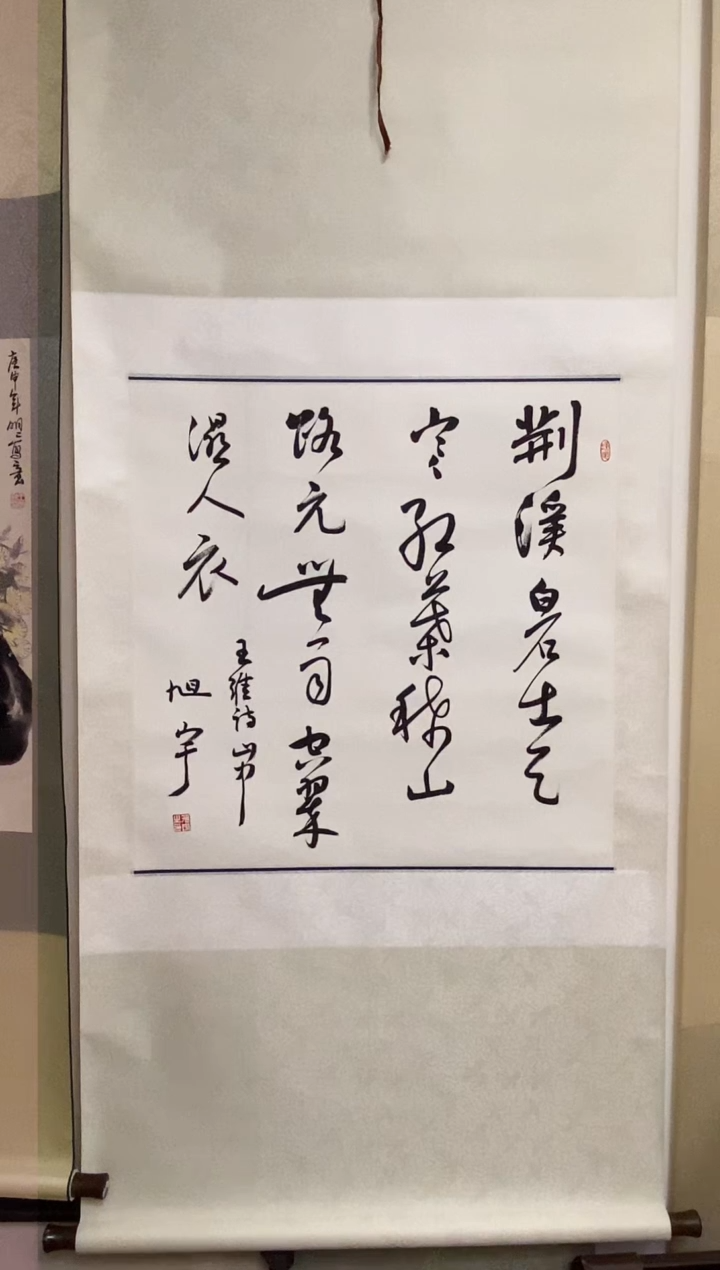 荆溪白石出天
寒紅葉稀山
路元無雨空翠
湿人衣
王維詩山中
旭宇
庚申年